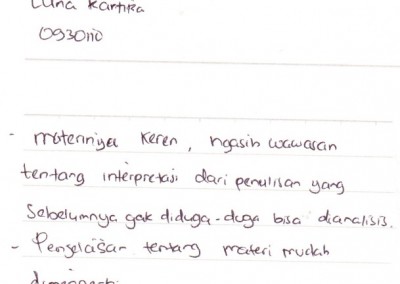 Luna Kartika
0930110
- materinya keren, ngasih wawasan
tentang interpretasi dari penulisan yang
sebelumnya gak diduga-duga bisa dianalisis.
- Penjelasan tentang materi mudah
dimengerti